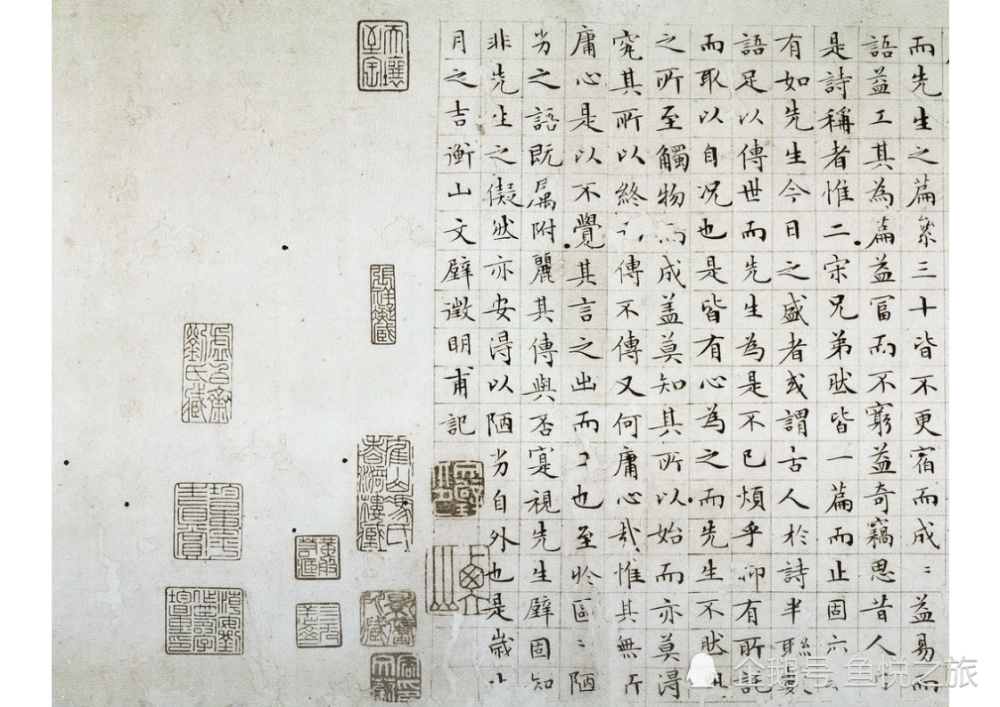 而先生之篇累三十皆不更宿而成〻益易而
語益工其為篇益富而不窮益奇竊思昔人
是詩稱者惟二宋兄弟然皆一篇而止固
有如先生今日之盛者或謂古人於詩半聯數
語足以傳世而先生為是不已煩乎抑有所託
而取以自况也是皆有心為之而先生不然
之所至觸物而成盖莫知其所以始而亦莫得
究其所以終傳不傳又何庸心哉惟其無所
庸心是以不覺其言之出而工也至於區〻陋
劣之語既属附麗其傳與否寔視先生壁固知
非先生之儗然亦安得以陋劣自外也是歲
月之吉衡山文壁徵明甫記
張祥凝藏
虛白齋劉氏藏
企鹅号 鱼悦之旅